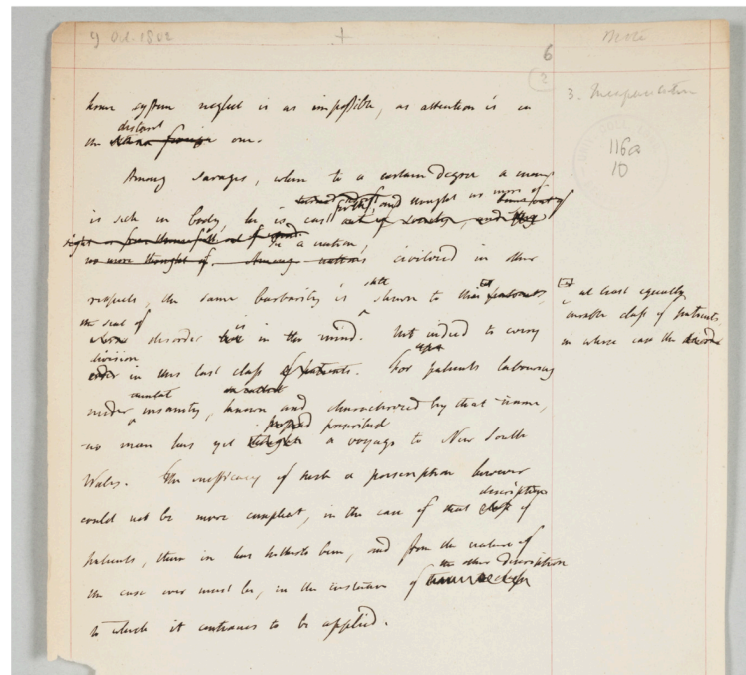 9 Oct. 1802
+
Note
6
2
3. Incapacitation
116a
10
home system neglect is as impossible, as attention is in
distant
the one.
Among Savages, when to a certain degree a man
is sick in body, he is cast forth, and thought no more of
In a nation, civilized in other
respects, the same barbarity is still shewn to that
at least equally
curable class of patients,
in whose case the
the seat of
disorder is in the mind. Not indeed to every
division
in this last class. For patients labouring
under mental insanity, known and characterized by that name,
no man has yet prescribed a voyage to New South
Wales. The inefficacy of such a prescription however
could not be more compleat, in the case of that description of
patients, than it has hitherto been, and from the nature of
the case ever must be, in the instance of the other description
to which it continues to be applied.